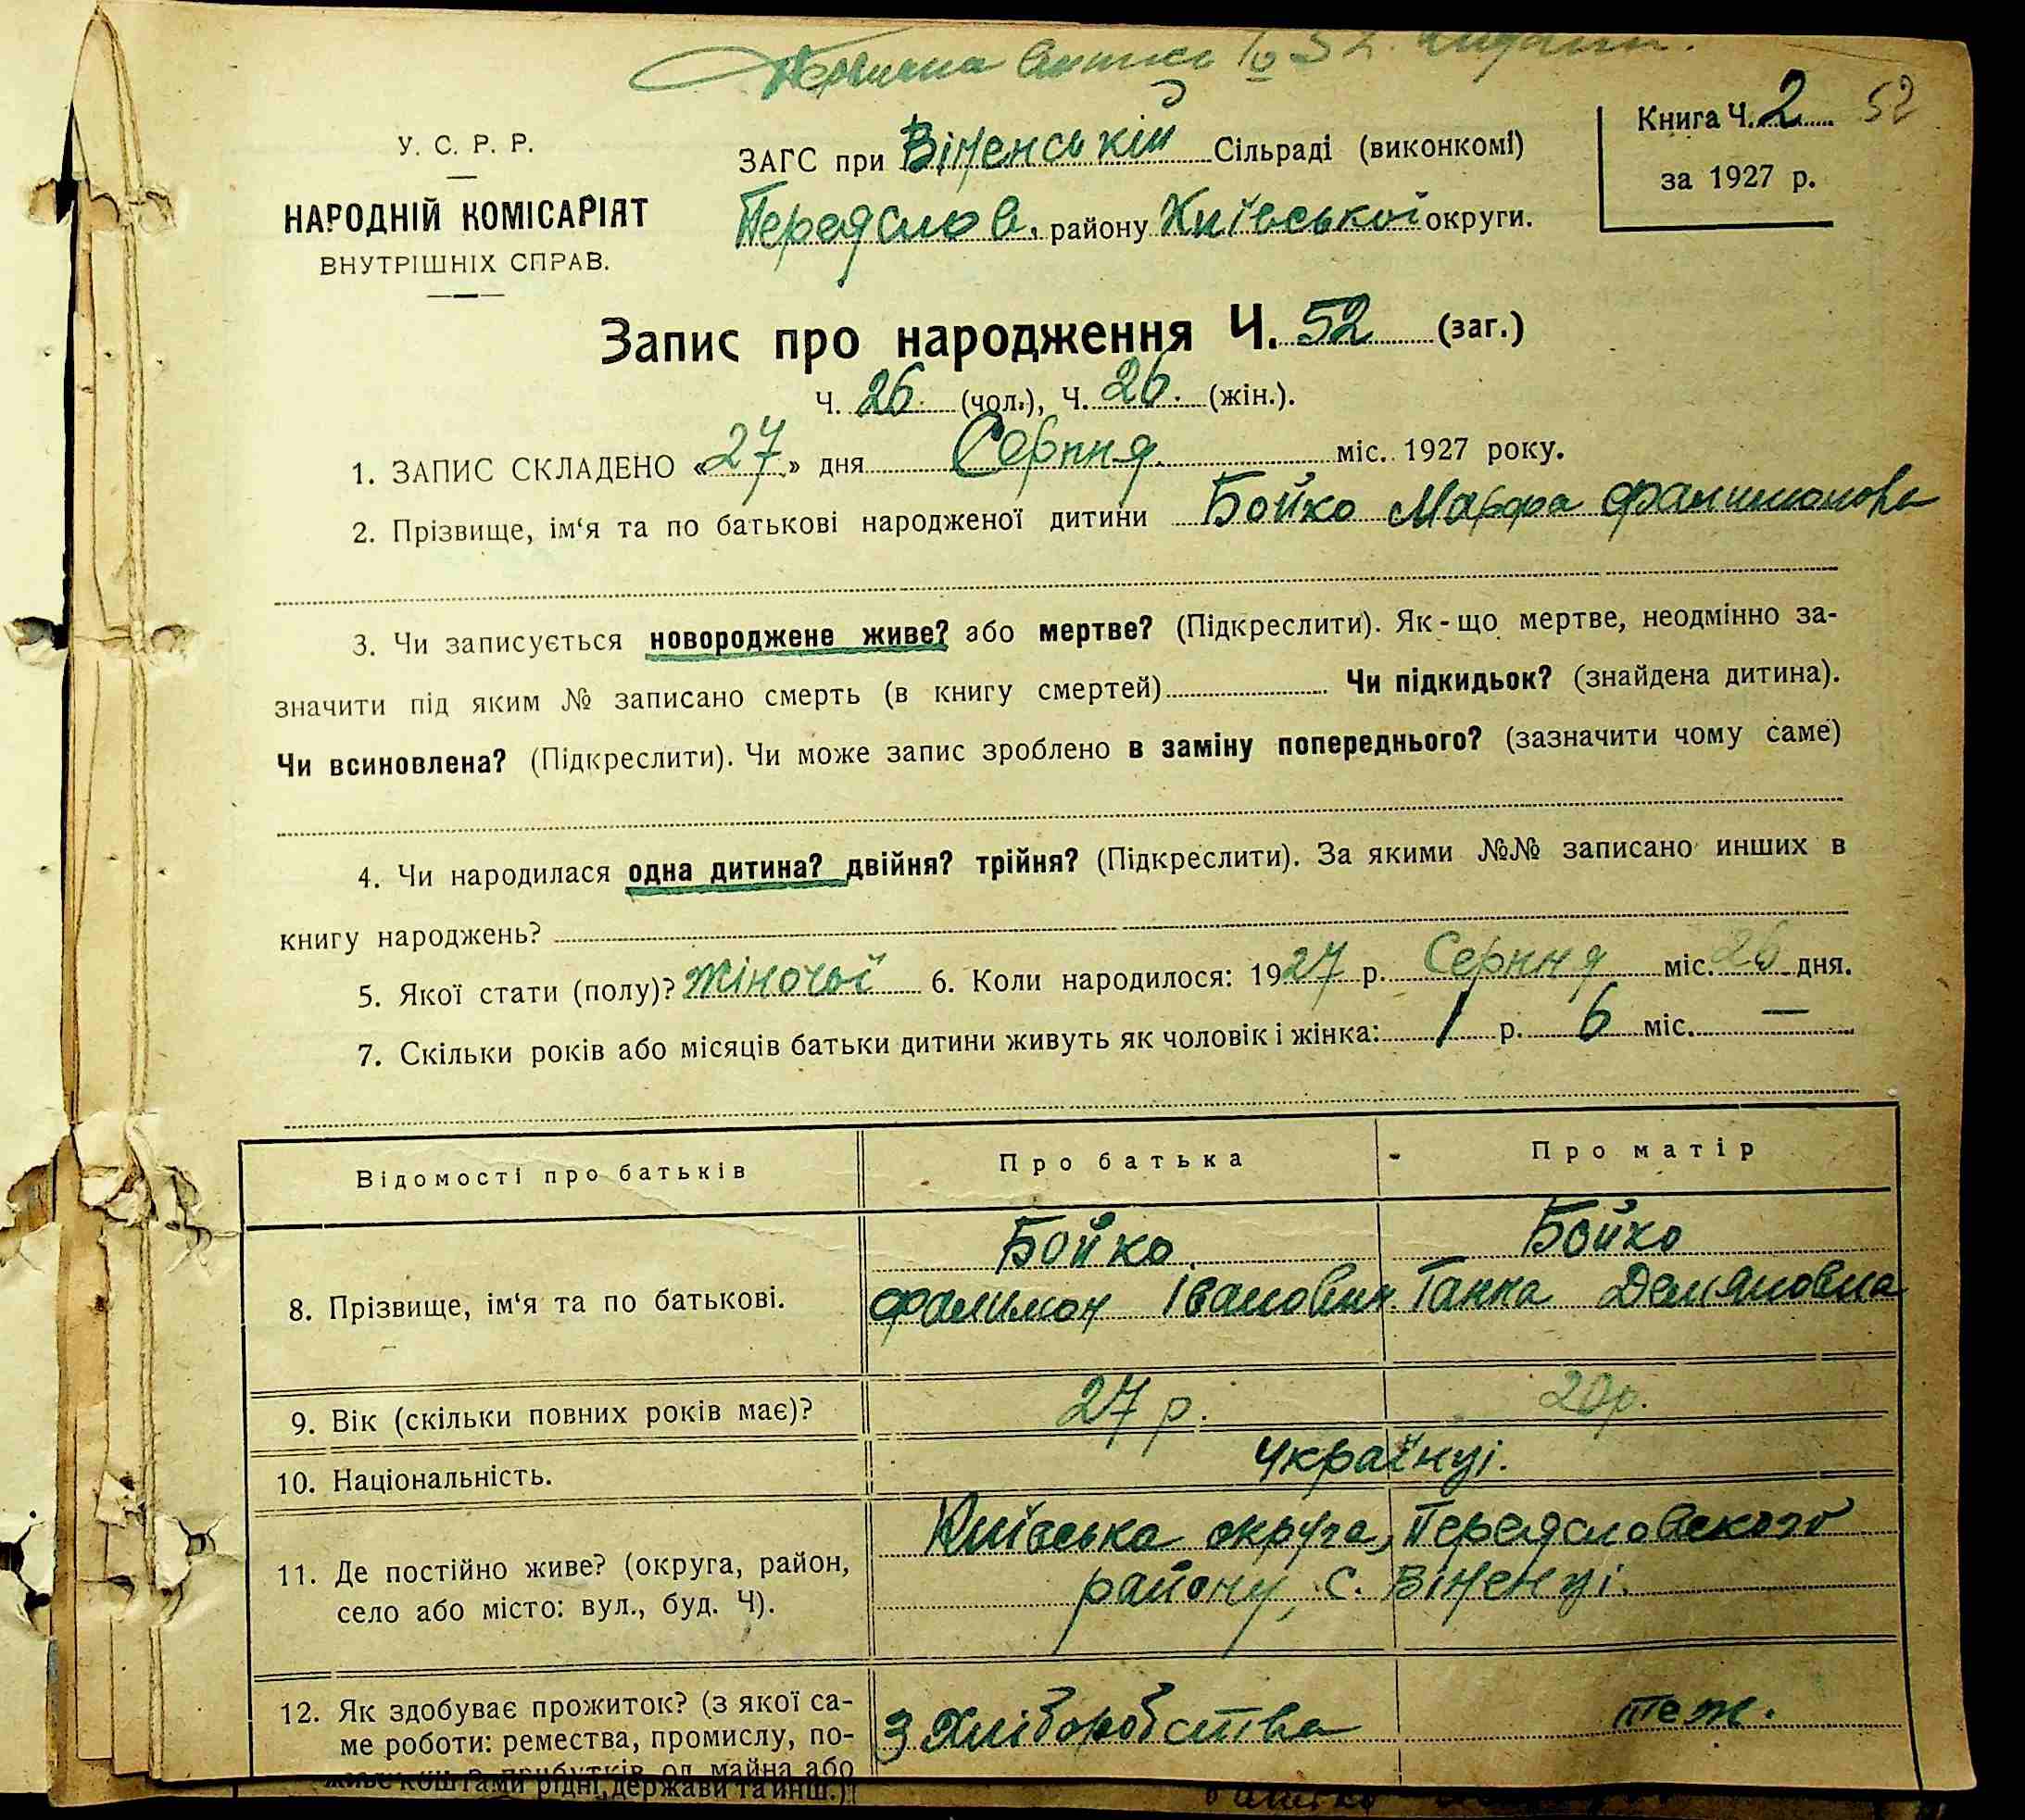 52
У. С. Р. Р.
НАРОДНІЙ КОМІСАРІЯТ
ВНУТРІШНІХ СПРАВ.
ЗАГС при Віненській Сільраді (виконкомі)
Переяслов. району Київської округи.
Книга Ч. 2
за 1927 р.
Запис про народження Ч. 52 (заг.)
Ч. 26. (чол.), Ч. 26. (жін.).
1. ЗАПИС СКЛАДЕНО «27» дня Серпня міс. 1927 року.
2. Прізвище, ім‘я та по батькові народженої дитини Бойко Марфа Фалимонова
3. Чи записується новороджене живе? або мертве? (Підкреслити). Як-що мертве, неодмінно за-
значити під яким № записано смерть (в книгу смертей) Чи підкидьок? (знайдена дитина).
Чи всиновлена? (Підкреслити). Чи може запис зроблено в заміну попереднього? (зазначити чому саме)
4. Чи народилася одна дитина? двійня? трійня? (Підкреслити). За якими №№ записано инших в
книгу народжень?
5. Якої стати (полу)? Жіночої 6. Коли народилося: 1927 р. Серпня міс. 26 дня.
7. Скільки років або місяців батьки дитини живуть як чоловік і жінка: 1 р. 6 міс. —
Відомості про батьків Про батька Про матір
Бойко Бойко
8. Прізвище, ім‘я та по батькові. Фалимон Іванович. Ганна Демяновна
9. Вік (скільки повних років має)? 27 р. 20 р.
10. Національність. Українці.
11. Де постійно живе? (округа, район, Київська округа, Переясловского
село або місто: вул., буд. Ч). району, с. Віненці.
12. Як здобуває прожиток? (з якої са- З Хліборобства теж.
ме роботи: ремества, промислу, по-
живе коштами рідні, держави та инш.)